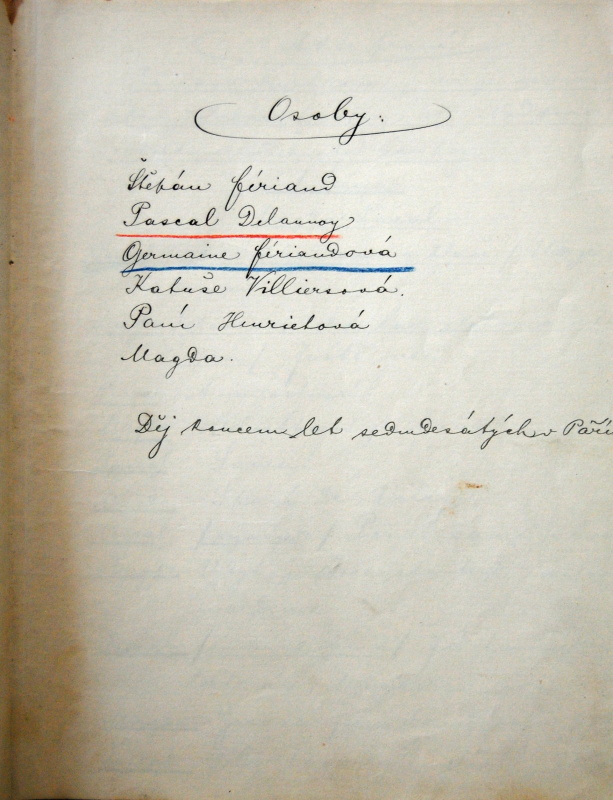 Osoby:
Štěpán Fériand
Pascal Delannoy
Germaine Fériandová
Katuše Villiersová.
Paní Henrietová
Magda.
Děj koncem let sedmdesátých v Paří